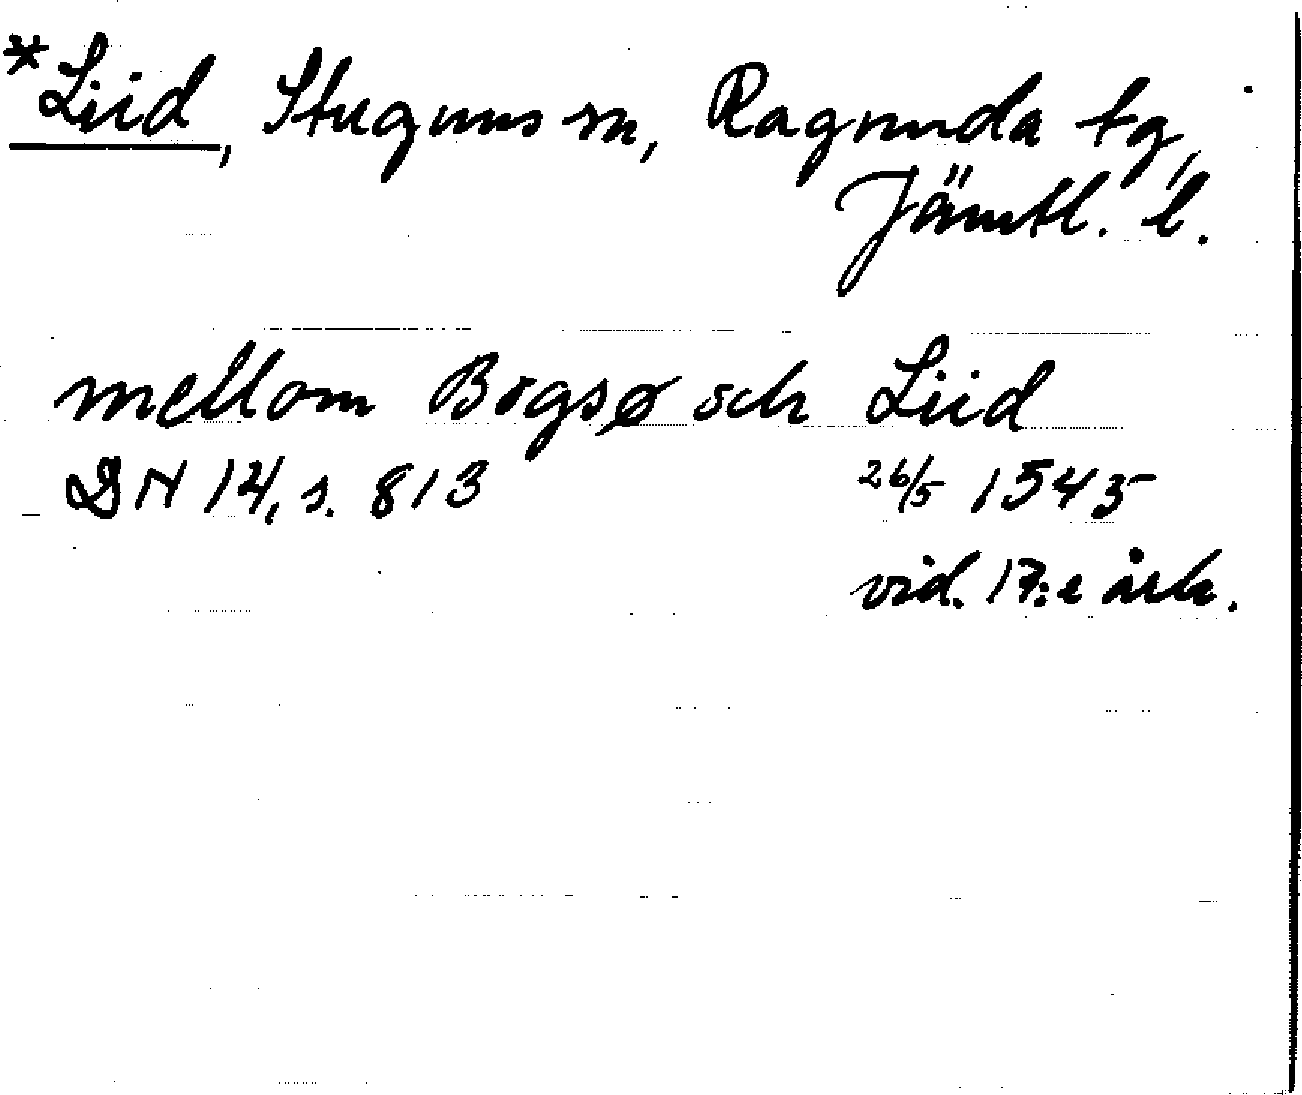 *Liid, Stuguns sn, Ragunda tg,
Jämtl. l.
mellom Bogsø och Liid
DN 14, s. 813 26/5 1545
vid. 17:e årh.